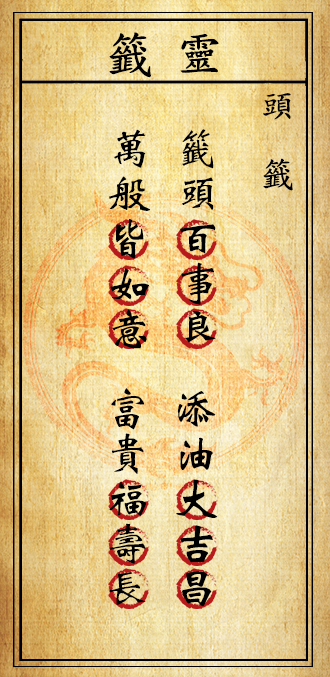 靈籤
頭籤
籤頭百事良 添油大吉昌
萬般皆如意 富貴福壽長